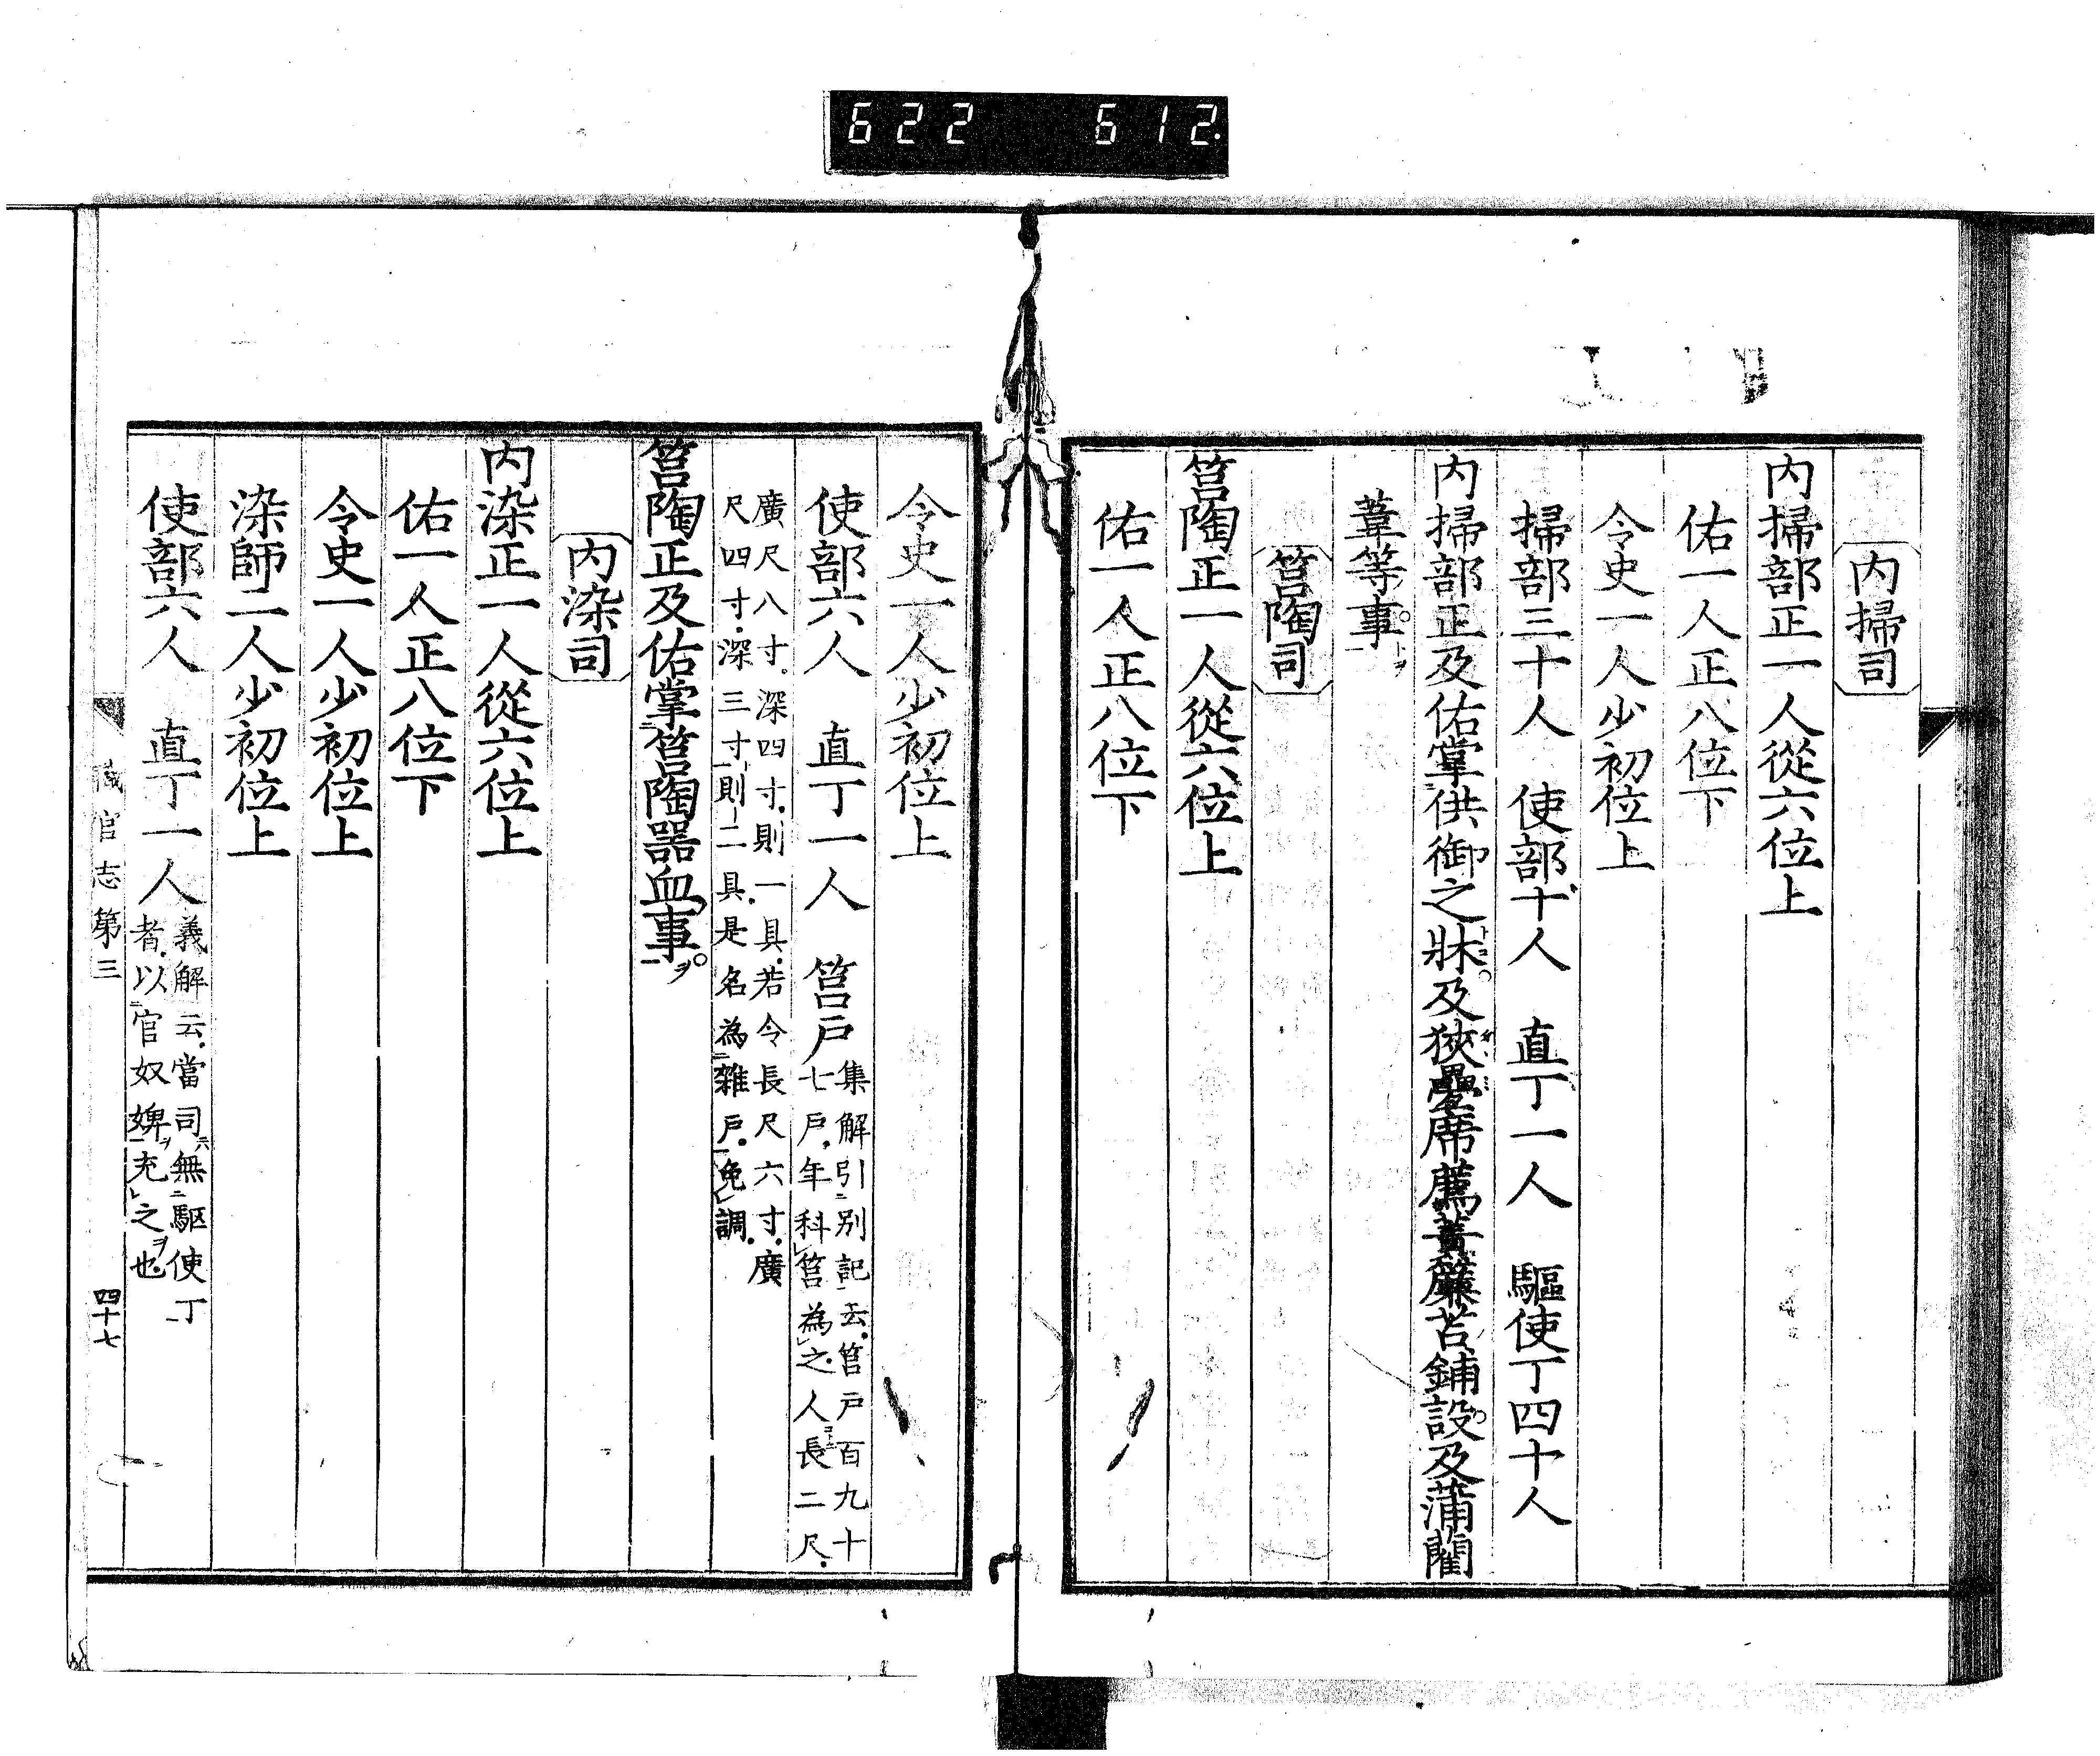 622 612
内掃司
内掃部正一人從六位上
佑一人正八位下
令史一人少初位上
掃部三十人 使部十人 直丁一人 驅使丁四十人
内掃部正及佑掌供御之牀及狹疊席薦簀簾苫鋪設及蒲藺
葦等事
筥陶司
筥陶正一人從六位上
佑一人正八位下
令史一人少初位上
使部六人 直丁一人 筥戸
集解引別記云筥戸百九十
七戸年科筥為之人長二尺
廣尺八寸深四寸則一具若令長尺六寸廣
尺四寸深三寸則二具是名為雜戸免調
筥陶正及佑掌筥陶器皿事
内染司
内染正一人從六位上
佑一人正八位下
令史一人少初位上
染師二人少初位上
使部六人 直丁一人
義解云當司無駆使丁
者以官奴婢充之也
職官志第三 四十七